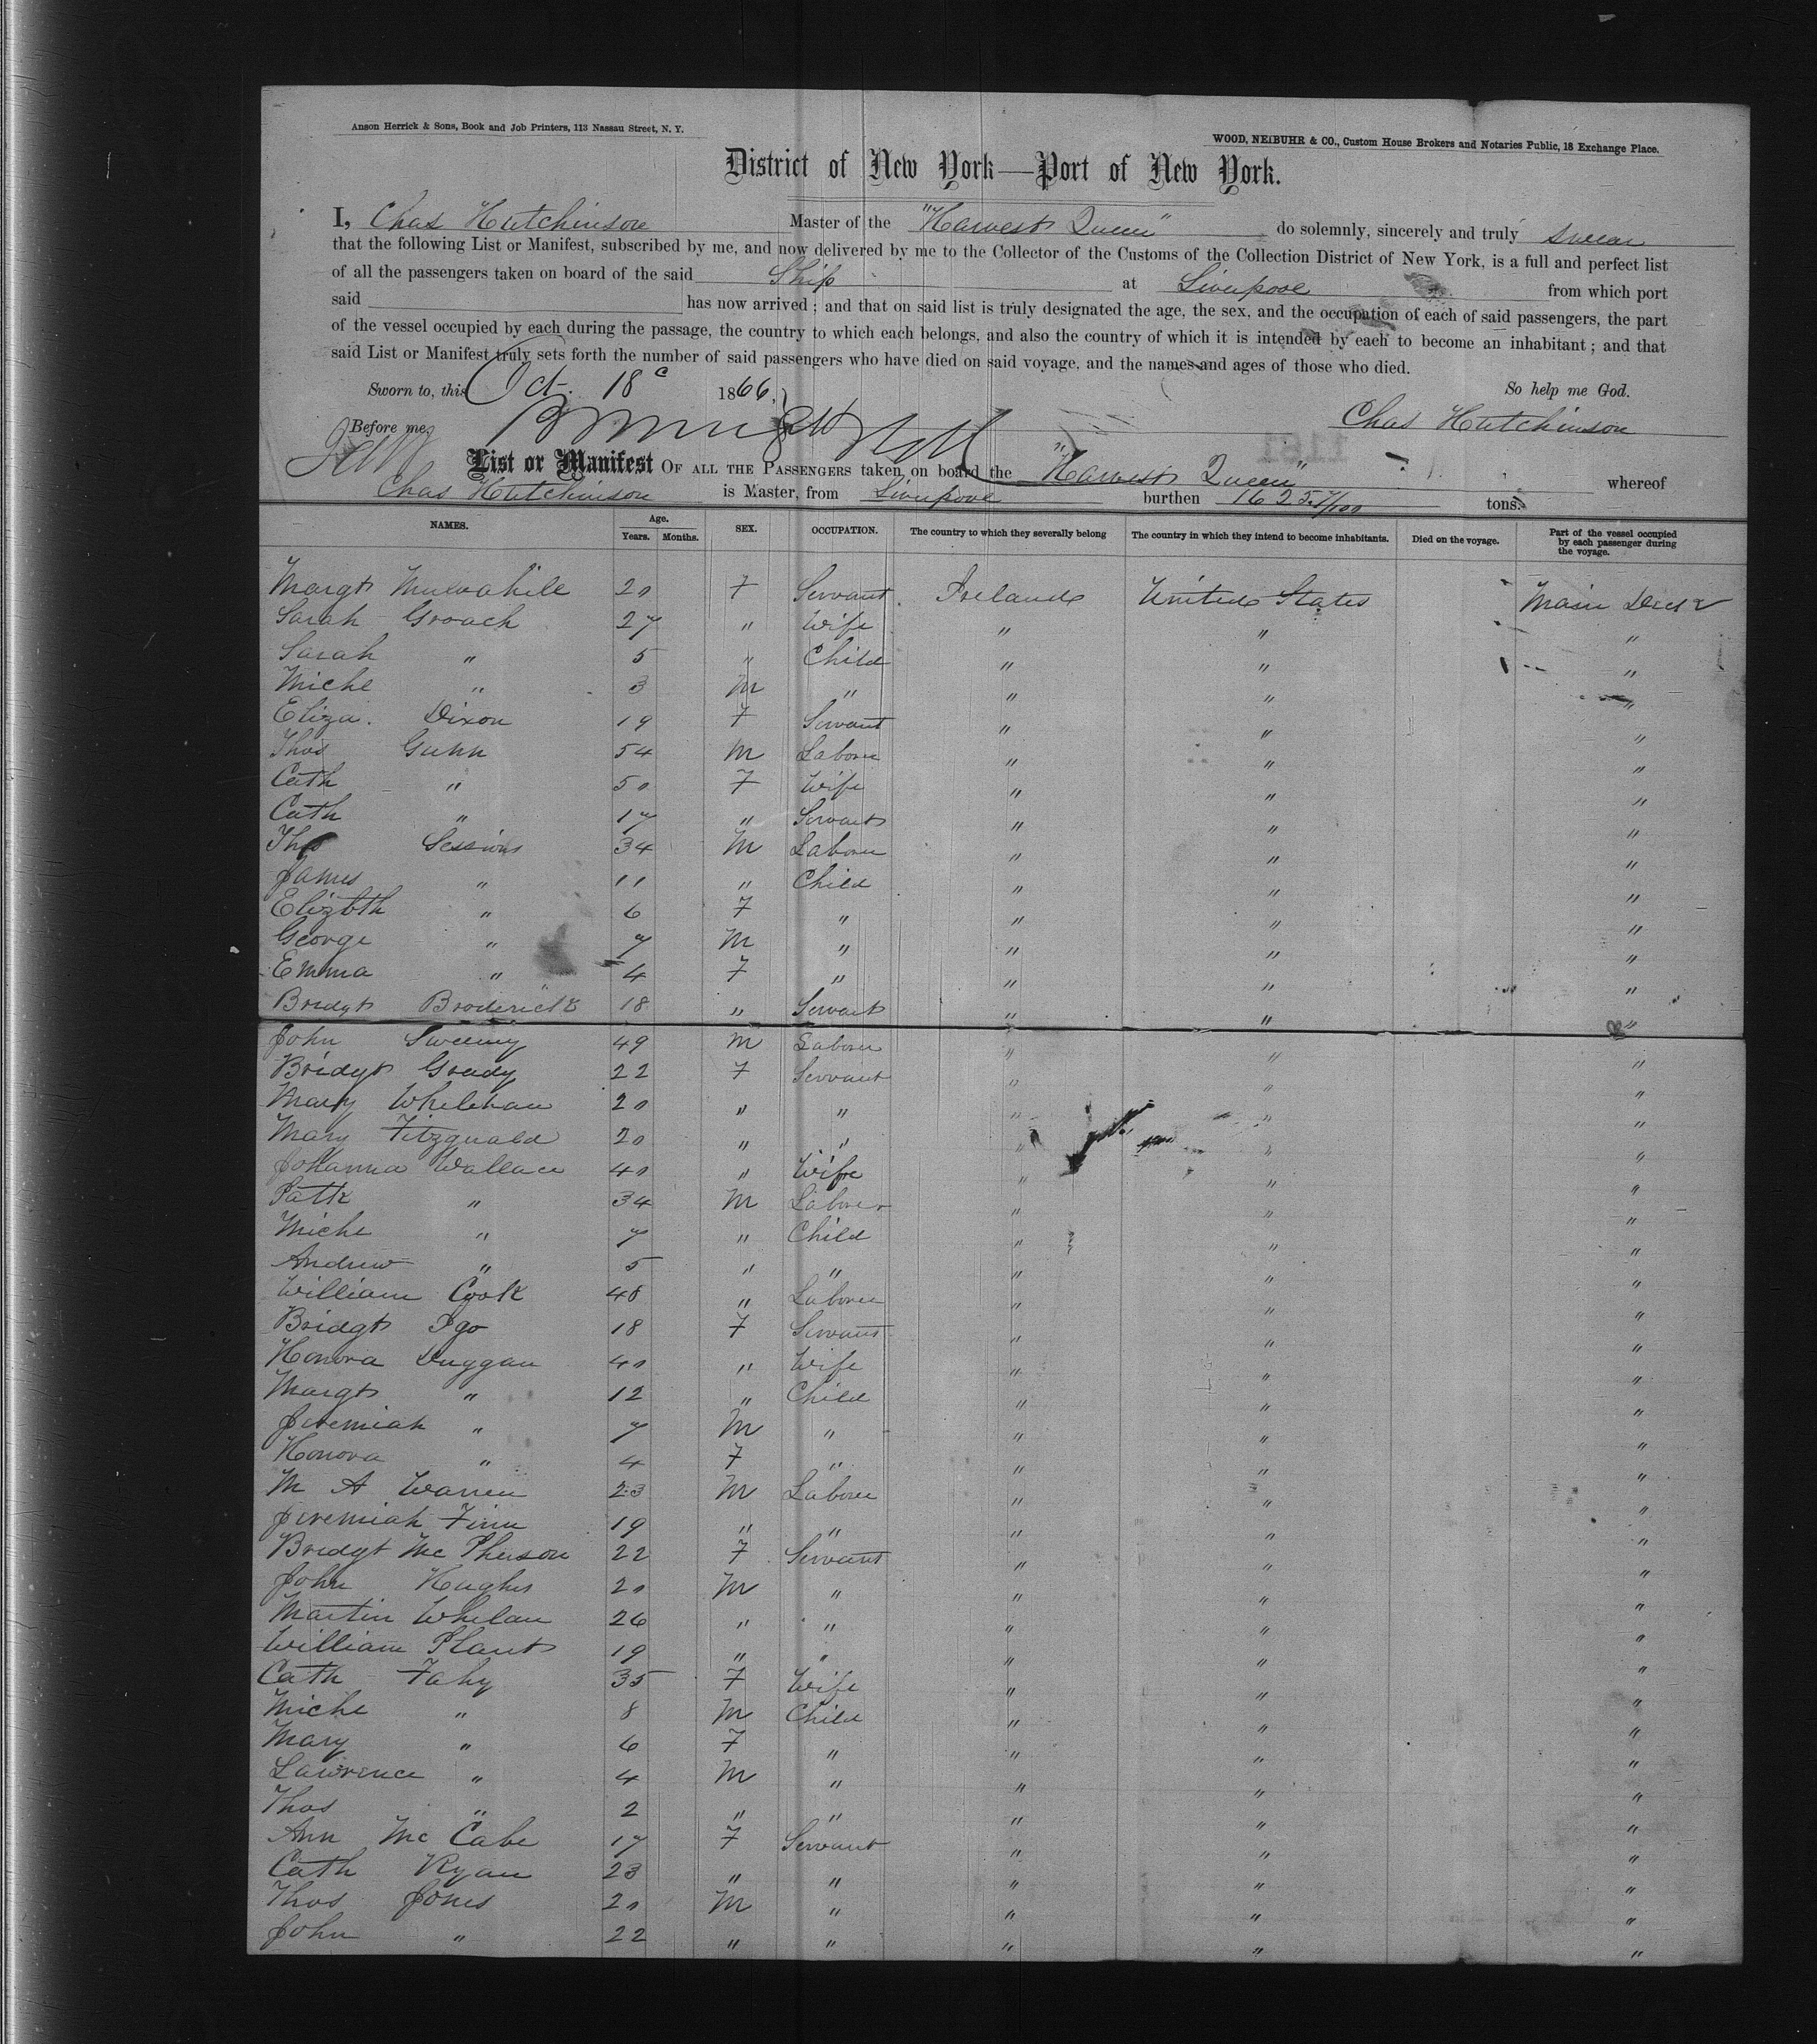 Anson Herrick & Sons, Book and Job Printers, 113 Nassau Street, N. Y.
WOOD, NEIBUHR & CO., Custom House Brokers and Notaries Public, 18 Exchange Place.
District of New York—Port of New York.
I, Chas Hutchinson Master of the "Harvest Queen" do solemnly, sincerely and truly swear
that the following List or Manifest, subscribed by me, and now delivered by me to the Collector of the Customs of the Collection District of New York, is a full and perfect list
of all the passengers taken on board of the said Ship at Liverpool from which port
said has now arrived; and that on said list is truly designated the age, the sex, and the occupation of each of said passengers, the part
of the vessel occupied by each during the passage, the country to which each belongs, and also the country of which it is intended by each to become an inhabitant; and that
said List or Manifest truly sets forth the number of said passengers who have died on said voyage, and the names and ages of those who died.
Sworn to, this Oct. 18 1866, So help me God.
Before me, Chas Hutchinson
List or Manifest OF ALL THE PASSENGERS taken on board the "Harvest Queen" whereof
Chas Hutchinson is Master, from Liverpool burthen 1625 tons.
NAMES. Age. Years. Months. SEX. OCCUPATION. The country to which they severally belong The country in which they intend to become inhabitants. Died on the voyage. Part of the vessel occupied by each passenger during the voyage.
Margt Mulvahill 20 F Servant Ireland United States Main Deck
Sarah Groach 27 " Wife " " "
Sarah " 5 " Child " " "
Michl " 3 M " " " "
Eliza. Dixon 19 F Servant " " "
Thos Gunn 54 M Laborer " " "
Cath " 50 F Wife " " "
Cath " 17 " Servant " " "
Thos Sessions 34 M Laborer " " "
James " 11 " Child " " "
Elizbth " 6 F " " " "
George " 7 M " " " "
Emma " 4 F " " " "
Bridgt Broderick 18 " Servant " " "
John Sweeny 49 M Laborer " " "
Bridgt Grady 22 F Servant " " "
Mary Whelehan 20 " " " " "
Mary Fitzgerald 20 " " " " "
Johanna Wallace 40 " Wife " " "
Patk " 34 M Laborer " " "
Michl " 7 " Child " " "
Andrew " 5 " " " " "
William Cook 48 " Laborer " " "
Bridgt Igo 18 F Servant " " "
Honora Duggan 40 " Wife " " "
Margt " 12 " Child " " "
Jeremiah " 7 M " " " "
Honora " 4 F " " " "
M A Warren 23 M Laborer " " "
Jeremiah Finn 19 " " " " "
Bridgt Mc Pherson 22 F Servant " " "
John Hughes 20 M " " " "
Martin Whelan 26 " " " " "
William Plant 19 " " " " "
Cath Fahy 35 F Wife " " "
Michl " 8 M Child " " "
Mary " 6 F " " " "
Lawrence " 4 M " " " "
Thos " 2 " " " " "
Ann Mc Cabe 17 F Servant " " "
Cath Ryan 23 " " " " "
Thos Jones 20 M " " " "
John " 22 " " " " "